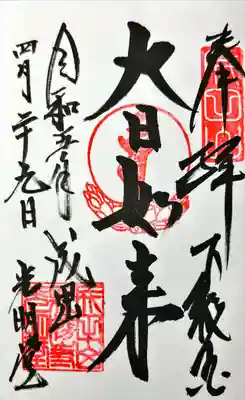 奉拝 下総国
大日如来
令和五年 成田山 光明堂
四月二十九日